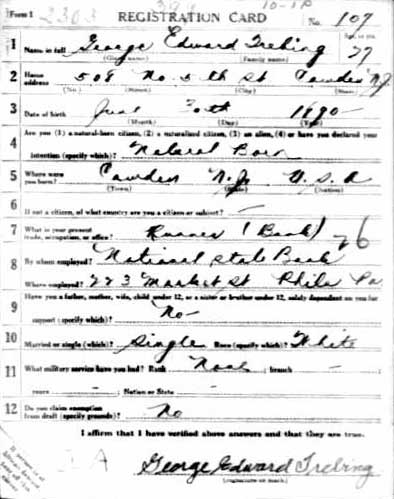 Form 1 2303 REGISTRATION CARD No. 107
1 Name in full George Edward Trebing Age, in yrs.
(Given name) (Family name) 27
2 Home address 508 No. 5th St Camden N.J.
(No.) (Street) (City) (State)
3 Date of birth 1890
(Month) (Day) (Year)
Are you (1) a natural-born citizen, (2) a naturalized citizen, (3) an alien, (4) or have you declared your
4 intention (specify which)? Natural Born
5 Where were you born? Camden N.J. U.S.A
(Town) (State) (Nation)
6 If not a citizen, of what country are you a citizen or subject? —
7 What is your present trade, occupation, or office? Runner (Bank) 26
8 By whom employed? National State Bank
Where employed? 223 Market St Phila Pa
9 Have you a father, mother, wife, child under 12, or a sister or brother under 12, solely dependent on you for
support (specify which)? No-
10 Married or single (which)? Single Race (specify which)? White
11 What military service have you had? Rank None ; branch —
years — ; Nation or State —
12 Do you claim exemption from draft (specify grounds)? No
I affirm that I have verified above answers and that they are true.
George Edward Trebing
(Signature or mark)